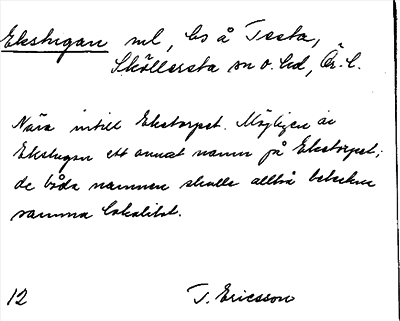 Ekstugan ml, bs å Testa,
Sköllersta sn o. hd, Ör. l.
Nära intill Ekstorpet. Möjligen är
Ekstugan ett annat namn på Ekstorpet;
de båda namnen skulle alltså beteckna
samma lokalitet.
12 T. Ericsson